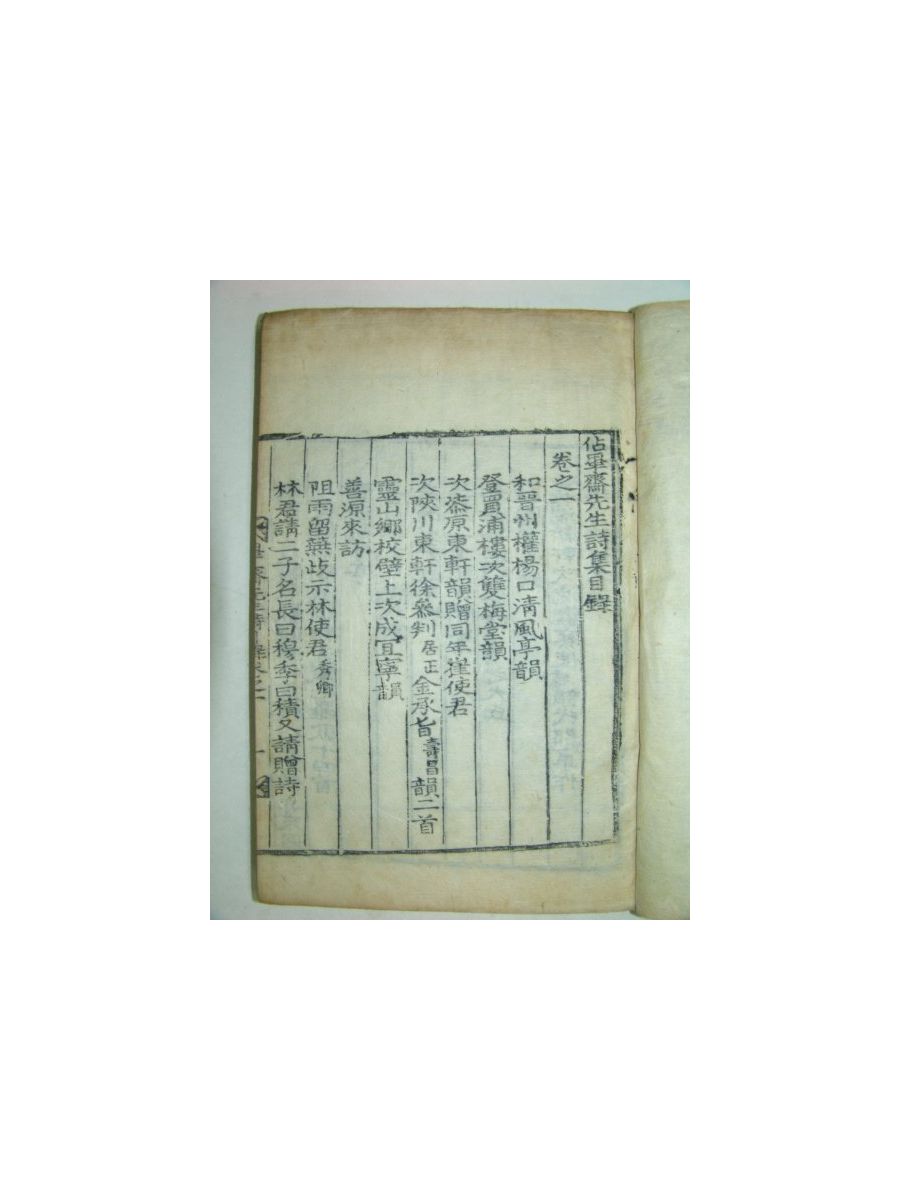 佔畢齋先生詩集目錄
卷之一
和晉州權楊口淸風亭韻
登買浦樓次雙梅堂韻
次漆原東軒韻贈同年崔使君
次陜川東軒徐參判居正金承旨壽昌韻二首
靈山鄕校壁上次成宜寧韻
善源來訪
阻雨留蕪歧示林使君秀卿
林君請二子名長曰穆季曰積又請贈詩